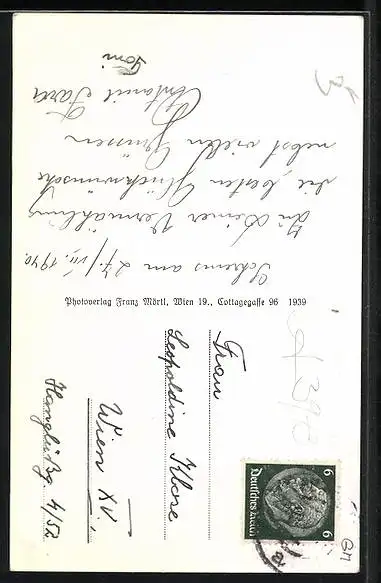 Schrems am 27/VII. 1940.
Zu Deiner Vermählung
die besten Glückwünsche
nebst vielen Grüssen
Toni
Photoverlag Franz Mörtl, Wien 19., Cottagegasse 96 1939
Frau
Leopoldine Klose
Wien XV.
4/52
Deutsches Reich
6 6